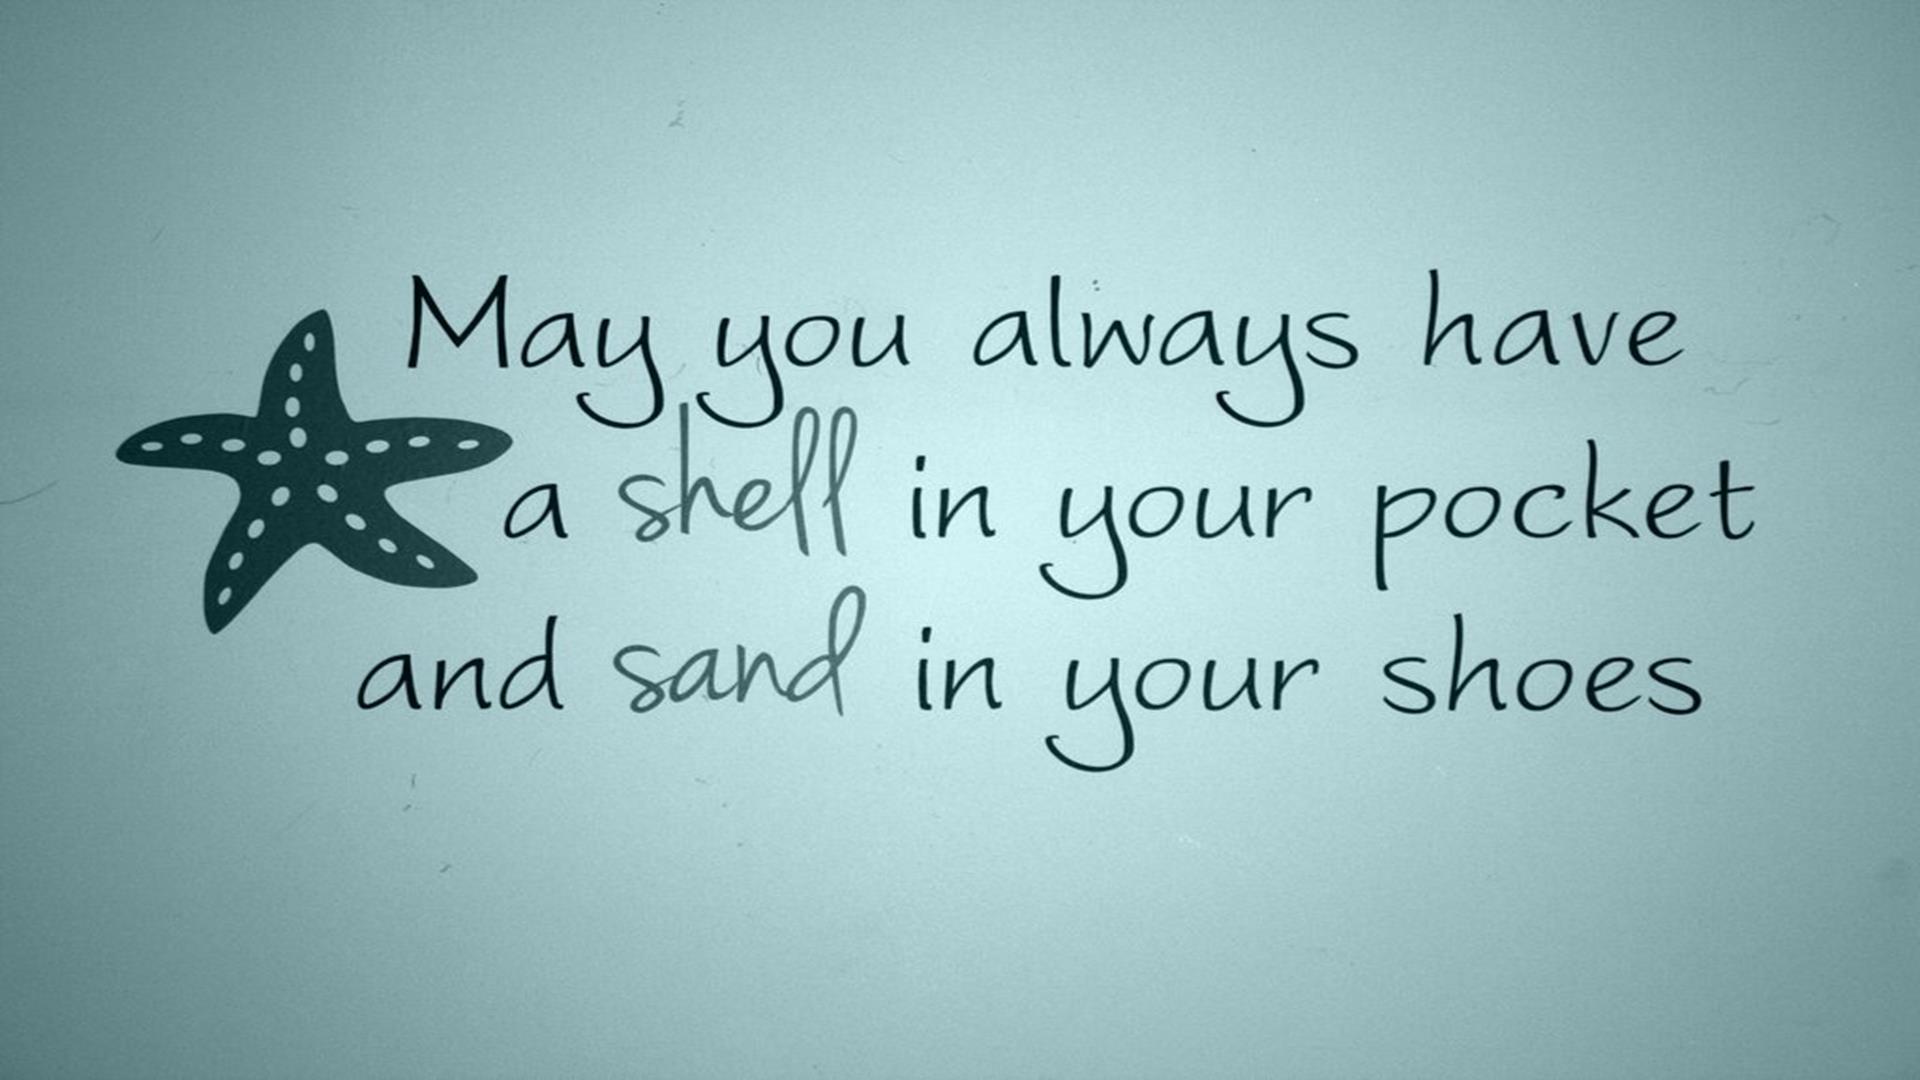 May you always have
a shell in your pocket
and sand in your shoes